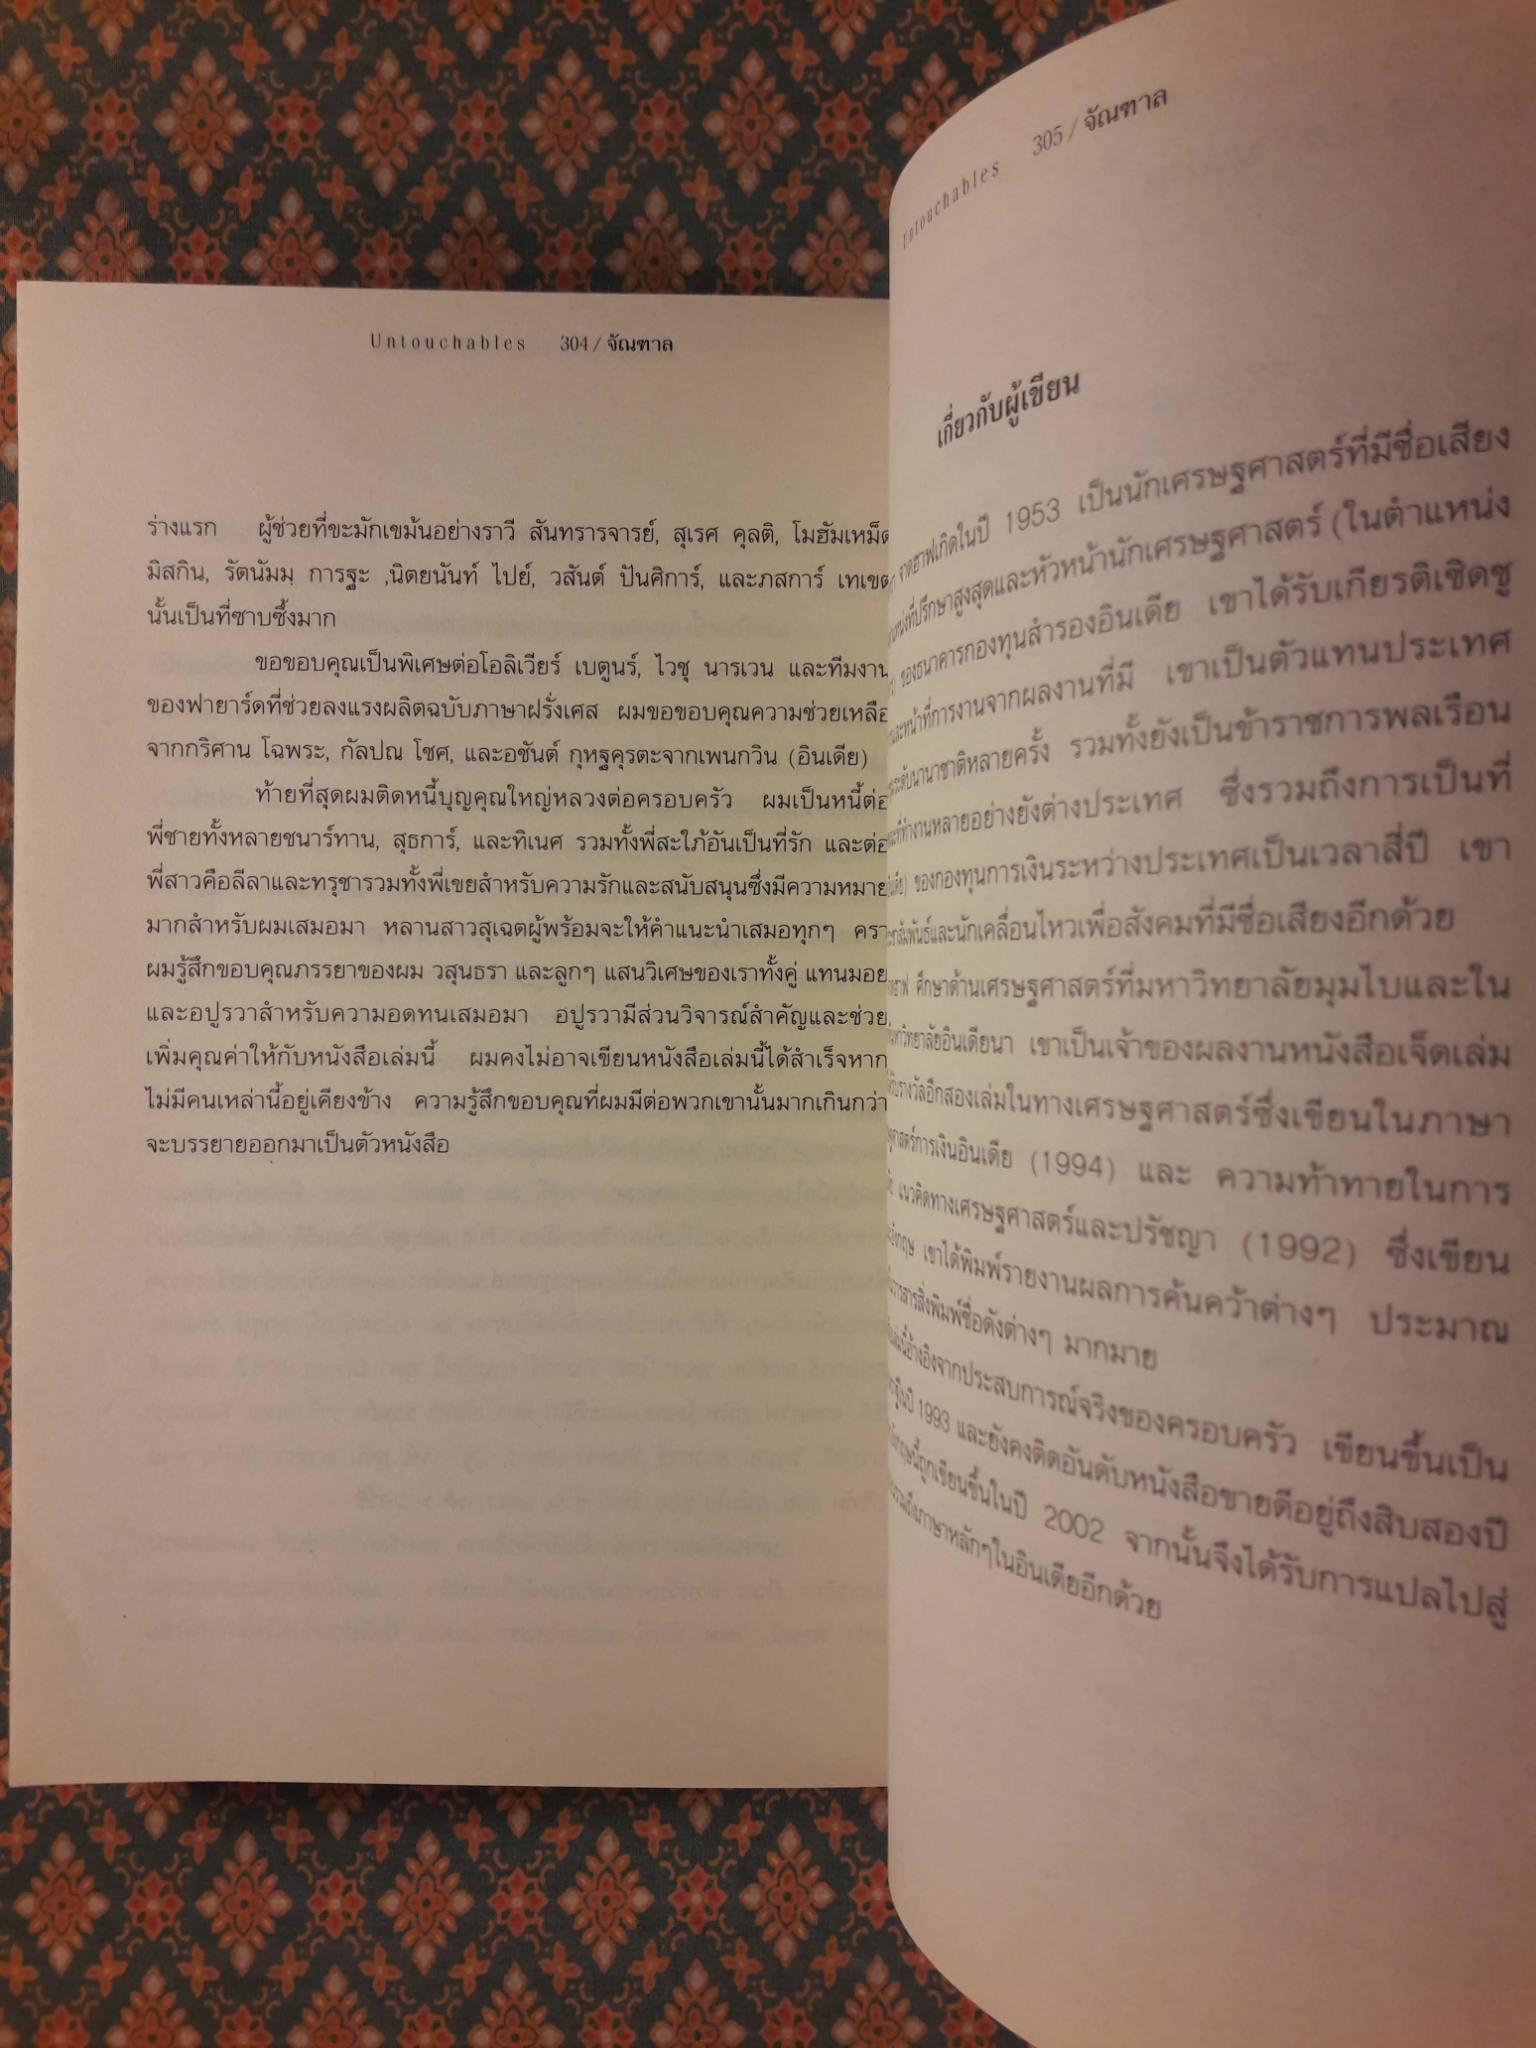 Untouchables 304 / จัณฑาล
ร่างแรก ผู้ช่วยที่ขะมักเขม้นอย่างราวี สันทรารจารย์, สุเรศ คุลติ, โมฮัมเหม็ด
มิสกิน, รัตนัมมฺ การฐะ ,นิตยนันท์ ไปย์, วสันต์ ปันศิการ์, และภสการ์ เทเขต
นั้นเป็นที่ซาบซึ้งมาก
ขอขอบคุณเป็นพิเศษต่อโอลิเวียร์ เบตูนร์, ไวชุ นารเวน และทีมงาน
ของฟายาร์ดที่ช่วยลงแรงผลิตฉบับภาษาฝรั่งเศส ผมขอขอบคุณความช่วยเหลือ
จากกริศาน โฉพระ, กัลปณ โชศ, และอชันต์ กุหฐคุรตะจากเพนกวิน (อินเดีย)
ท้ายที่สุดผมติดหนี้บุญคุณใหญ่หลวงต่อครอบครัว ผมเป็นหนี้ต่อ
พี่ชายทั้งหลายชนาร์ทาน, สุธการ์, และทิเนศ รวมทั้งพี่สะใภ้อันเป็นที่รัก และต่อ
พี่สาวคือลีลาและทรุชารวมทั้งพี่เขยสำหรับความรักและสนับสนุนซึ่งมีความหมาย
มากสำหรับผมเสมอมา หลานสาวสุเฉตผู้พร้อมจะให้คำแนะนำเสมอทุกๆ ครา
ผมรู้สึกขอบคุณภรรยาของผม วสุนธรา และลูกๆ แสนวิเศษของเราทั้งคู่ แทนมอย
และอปูรวาสำหรับความอดทนเสมอมา อปูรวามีส่วนวิจารณ์สำคัญและช่วย
เพิ่มคุณค่าให้กับหนังสือเล่มนี้ ผมคงไม่อาจเขียนหนังสือเล่มนี้ได้สำเร็จหาก
ไม่มีคนเหล่านี้อยู่เคียงข้าง ความรู้สึกขอบคุณที่ผมมีต่อพวกเขานั้นมากเกินกว่า
จะบรรยายออกมาเป็นตัวหนังสือ
Untouchables 305 / จัณฑาล
เกี่ยวกับผู้เขียน
เกิดในปี 1953 เป็นนักเศรษฐศาสตร์ที่มีชื่อเสียง
ที่ปรึกษาสูงสุดและหัวหน้านักเศรษฐศาสตร์ (ในตำแหน่ง
ของธนาคารกองทุนสำรองอินเดีย เขาได้รับเกียรติเชิดชู
และหน้าที่การงานจากผลงานที่มี เขาเป็นตัวแทนประเทศ
ระดับนานาชาติหลายครั้ง รวมทั้งยังเป็นข้าราชการพลเรือน
ที่ทำงานหลายอย่างยังต่างประเทศ ซึ่งรวมถึงการเป็นที่
ของกองทุนการเงินระหว่างประเทศเป็นเวลาสี่ปี เขา
และนักเคลื่อนไหวเพื่อสังคมที่มีชื่อเสียงอีกด้วย
ศึกษาด้านเศรษฐศาสตร์ที่มหาวิทยาลัยมุมไบและใน
มหาวิทยาลัยอินเดียนา เขาเป็นเจ้าของผลงานหนังสือเจ็ดเล่ม
รางวัลอีกสองเล่มในทางเศรษฐศาสตร์ซึ่งเขียนในภาษา
การเงินอินเดีย (1994) และ ความท้าทายในการ
แนวคิดทางเศรษฐศาสตร์และปรัชญา (1992) ซึ่งเขียน
เขาได้พิมพ์รายงานผลการค้นคว้าต่างๆ ประมาณ
วารสารสิ่งพิมพ์ชื่อดังต่างๆ มากมาย
อ้างอิงจากประสบการณ์จริงของครอบครัว เขียนขึ้นเป็น
ในปี 1993 และยังคงติดอันดับหนังสือขายดีอยู่ถึงสิบสองปี
นี้ถูกเขียนขึ้นในปี 2002 จากนั้นจึงได้รับการแปลไปสู่
รวมถึงภาษาหลักๆในอินเดียอีกด้วย